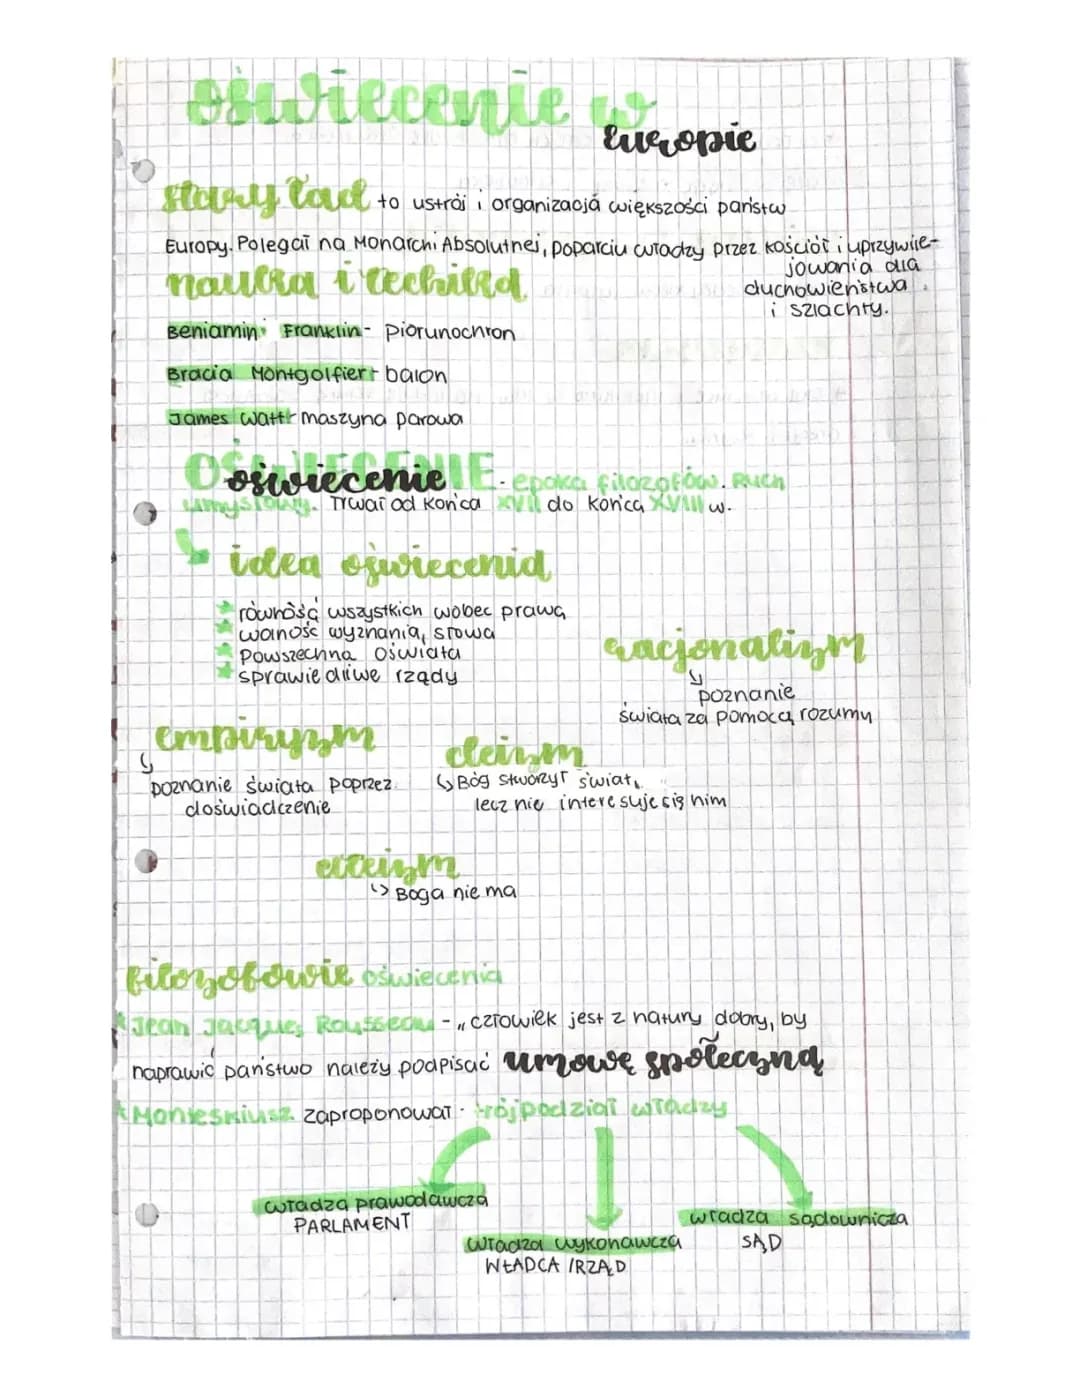 oświecenie w
Europie
stary ład to ustrój i organizacja większości państw
Europy. Polegał na Monarchi Absolutnej, poparciu władzy przez kościół i uprzywile-
jowania dla
duchowieństwa
i szlachty.
nauka i technika
Beniamin Franklin - piorunochron
Bracia Montgolfier - balon
James Watt - maszyna parowa
OŚWIECENIE
oświecenie - epoka filozofów. Ruch
umysłowy. Trwał od końca XVII do końca XVIII w.
idea oświecenia
równość wszystkich wobec prawa
wolność wyznania, słowa
Powszechna oświata
sprawiedliwe rządy
racjonalizm
poznanie
świata za pomocą rozumu
empiryzm
poznanie świata poprzez
doświadczenie
deizm
Bóg stworzył świat,
lecz nie interesuje się nim
ateizm
Boga nie ma
filozofowie oświecenia
Jean Jacques Rousseau - „człowiek jest z natury dobry, by
naprawić państwo należy podpisać umowę społeczną
Monteskiusz zaproponował - trójpodział władzy
władza prawodawcza
PARLAMENT
władza wykonawcza
WŁADCA / RZĄD
władza sądownicza
SĄD